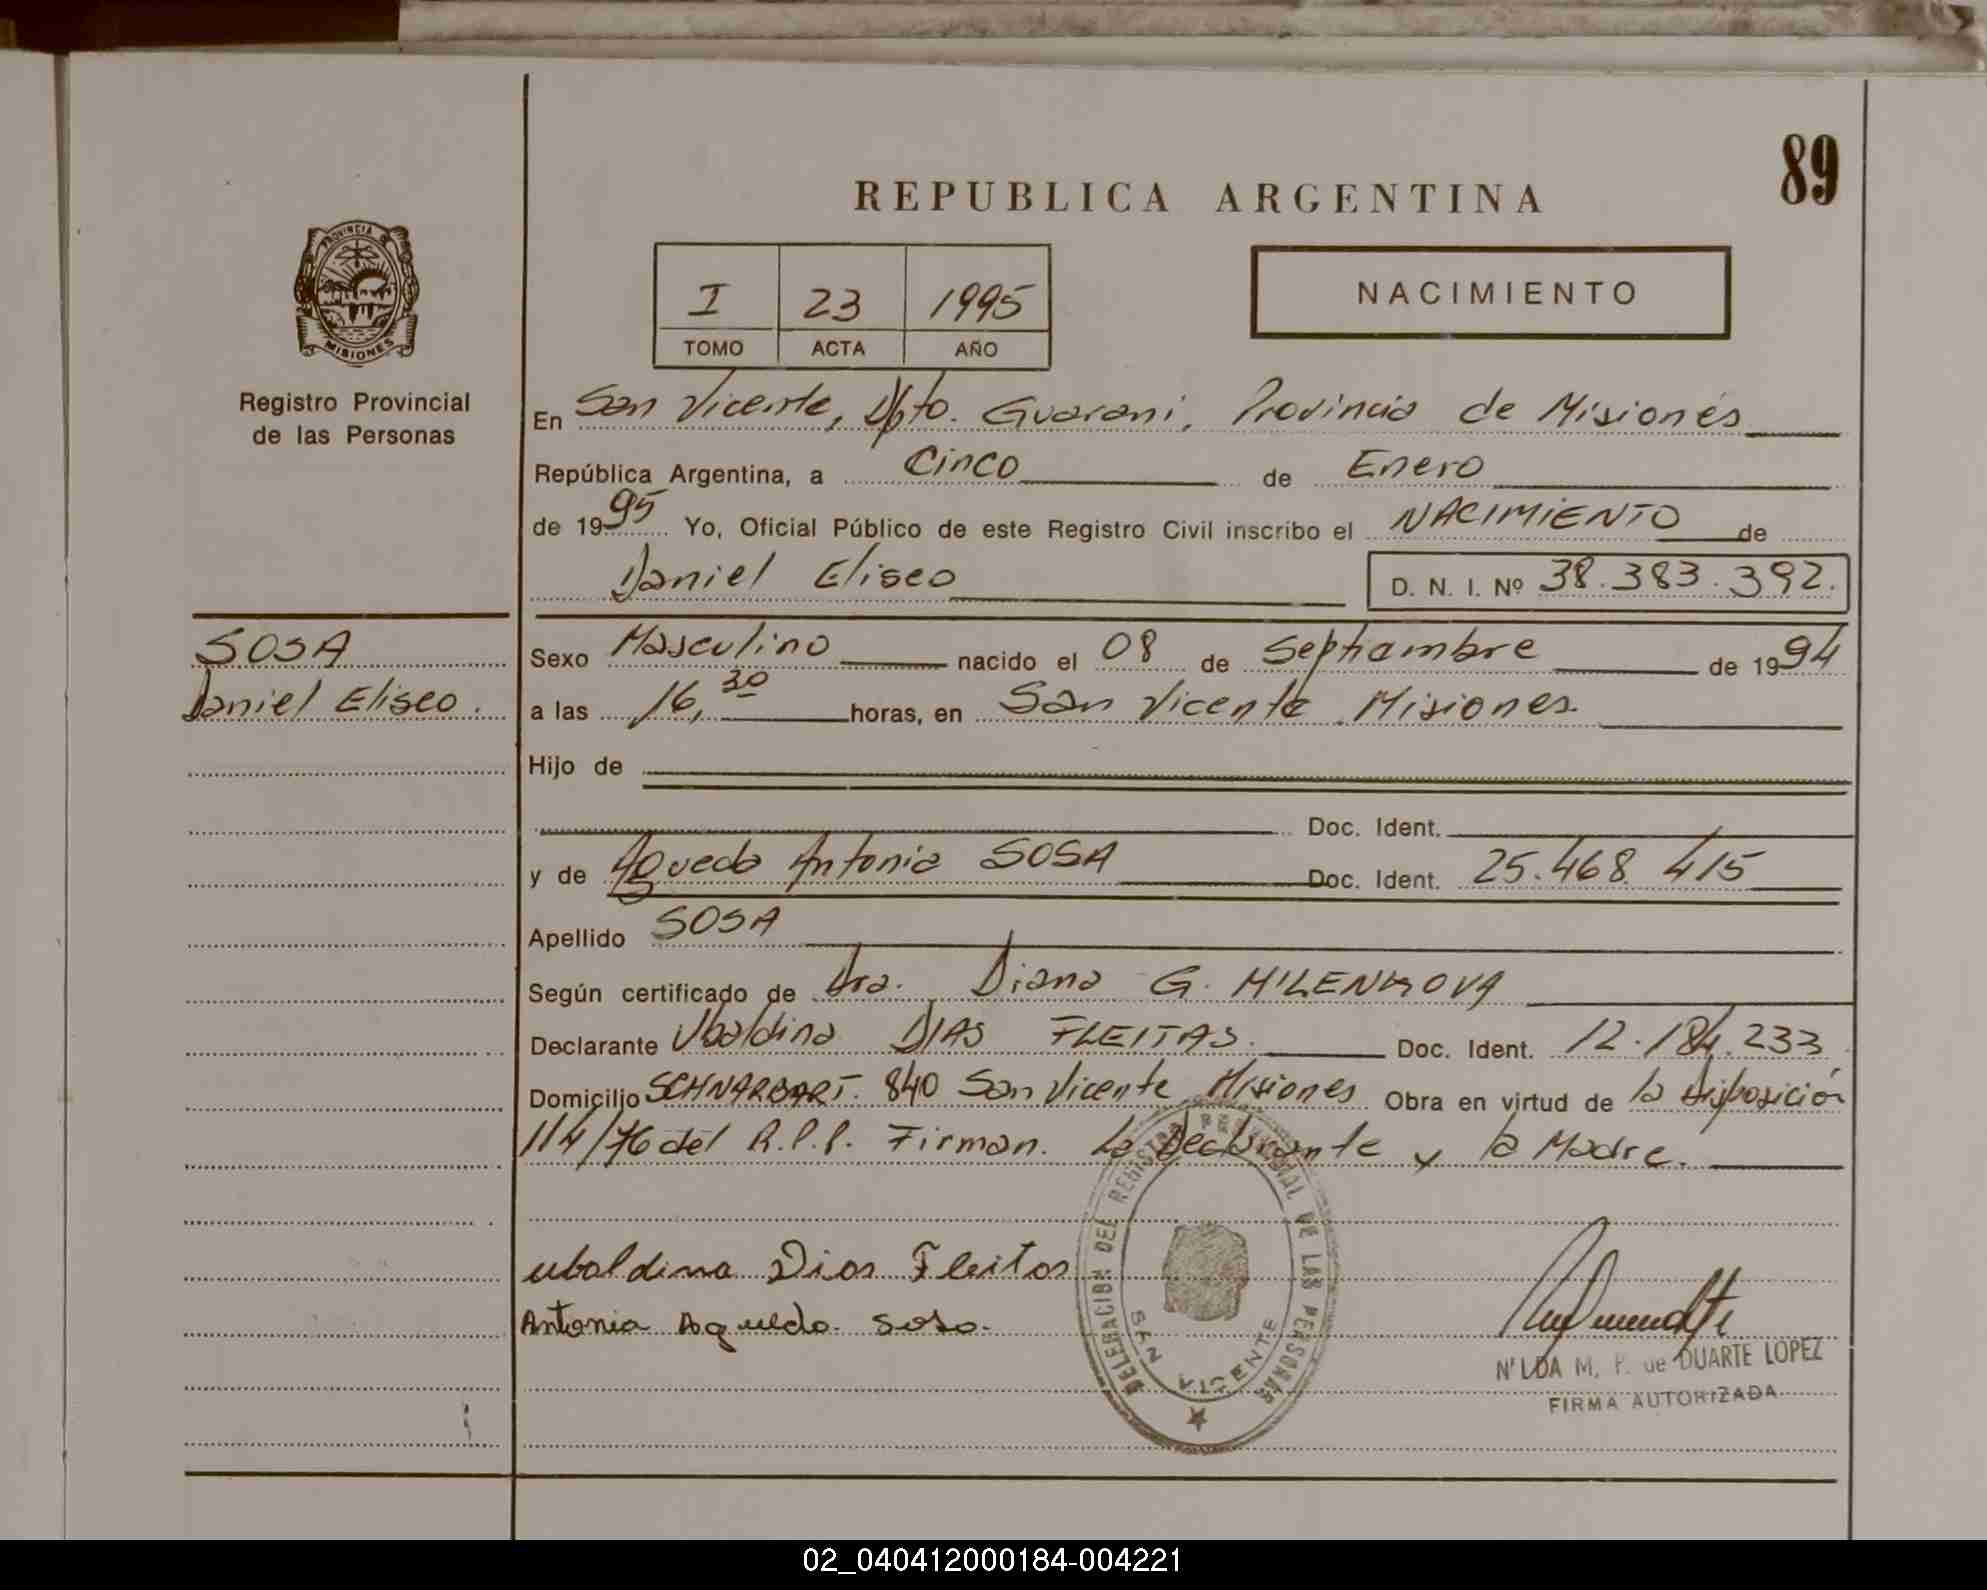 89
REPUBLICA ARGENTINA
PROVINCIA DE
MISIONES
Registro Provincial
de las Personas
I 23 1995
TOMO ACTA AÑO
NACIMIENTO
En San Vicente, Dpto. Guarani, Provincia de Misiones
República Argentina, a Cinco de Enero
de 1995 Yo, Oficial Público de este Registro Civil inscribo el NACIMIENTO de
Daniel Eliseo D. N. I. Nº 38.383.392.
SOSA
Daniel Eliseo.
Sexo Masculino nacido el 08 de Septiembre de 1994
a las 16,30 horas, en San Vicente Misiones.
Hijo de
Doc. Ident.
y de Agueda Antonia SOSA Doc. Ident. 25.468.415
Apellido SOSA
Según certificado de Dra. Diana G. MILENKOVA
Declarante Ubaldina DIAS FLEITAS. Doc. Ident. 12.184.233
Domicilio 840 San Vicente Misiones Obra en virtud de la disposición
114/76 del R.P.P. Firman. La Declarante y la Madre.
ubaldina Dias Fleitas
Antonia Agueda Sosa.
DELEGACION DEL REGISTRO PROVINCIAL DE LAS PERSONAS
SAN VICENTE
M. P. de DUARTE LOPEZ
FIRMA AUTORIZADA
02_040412000184-004221